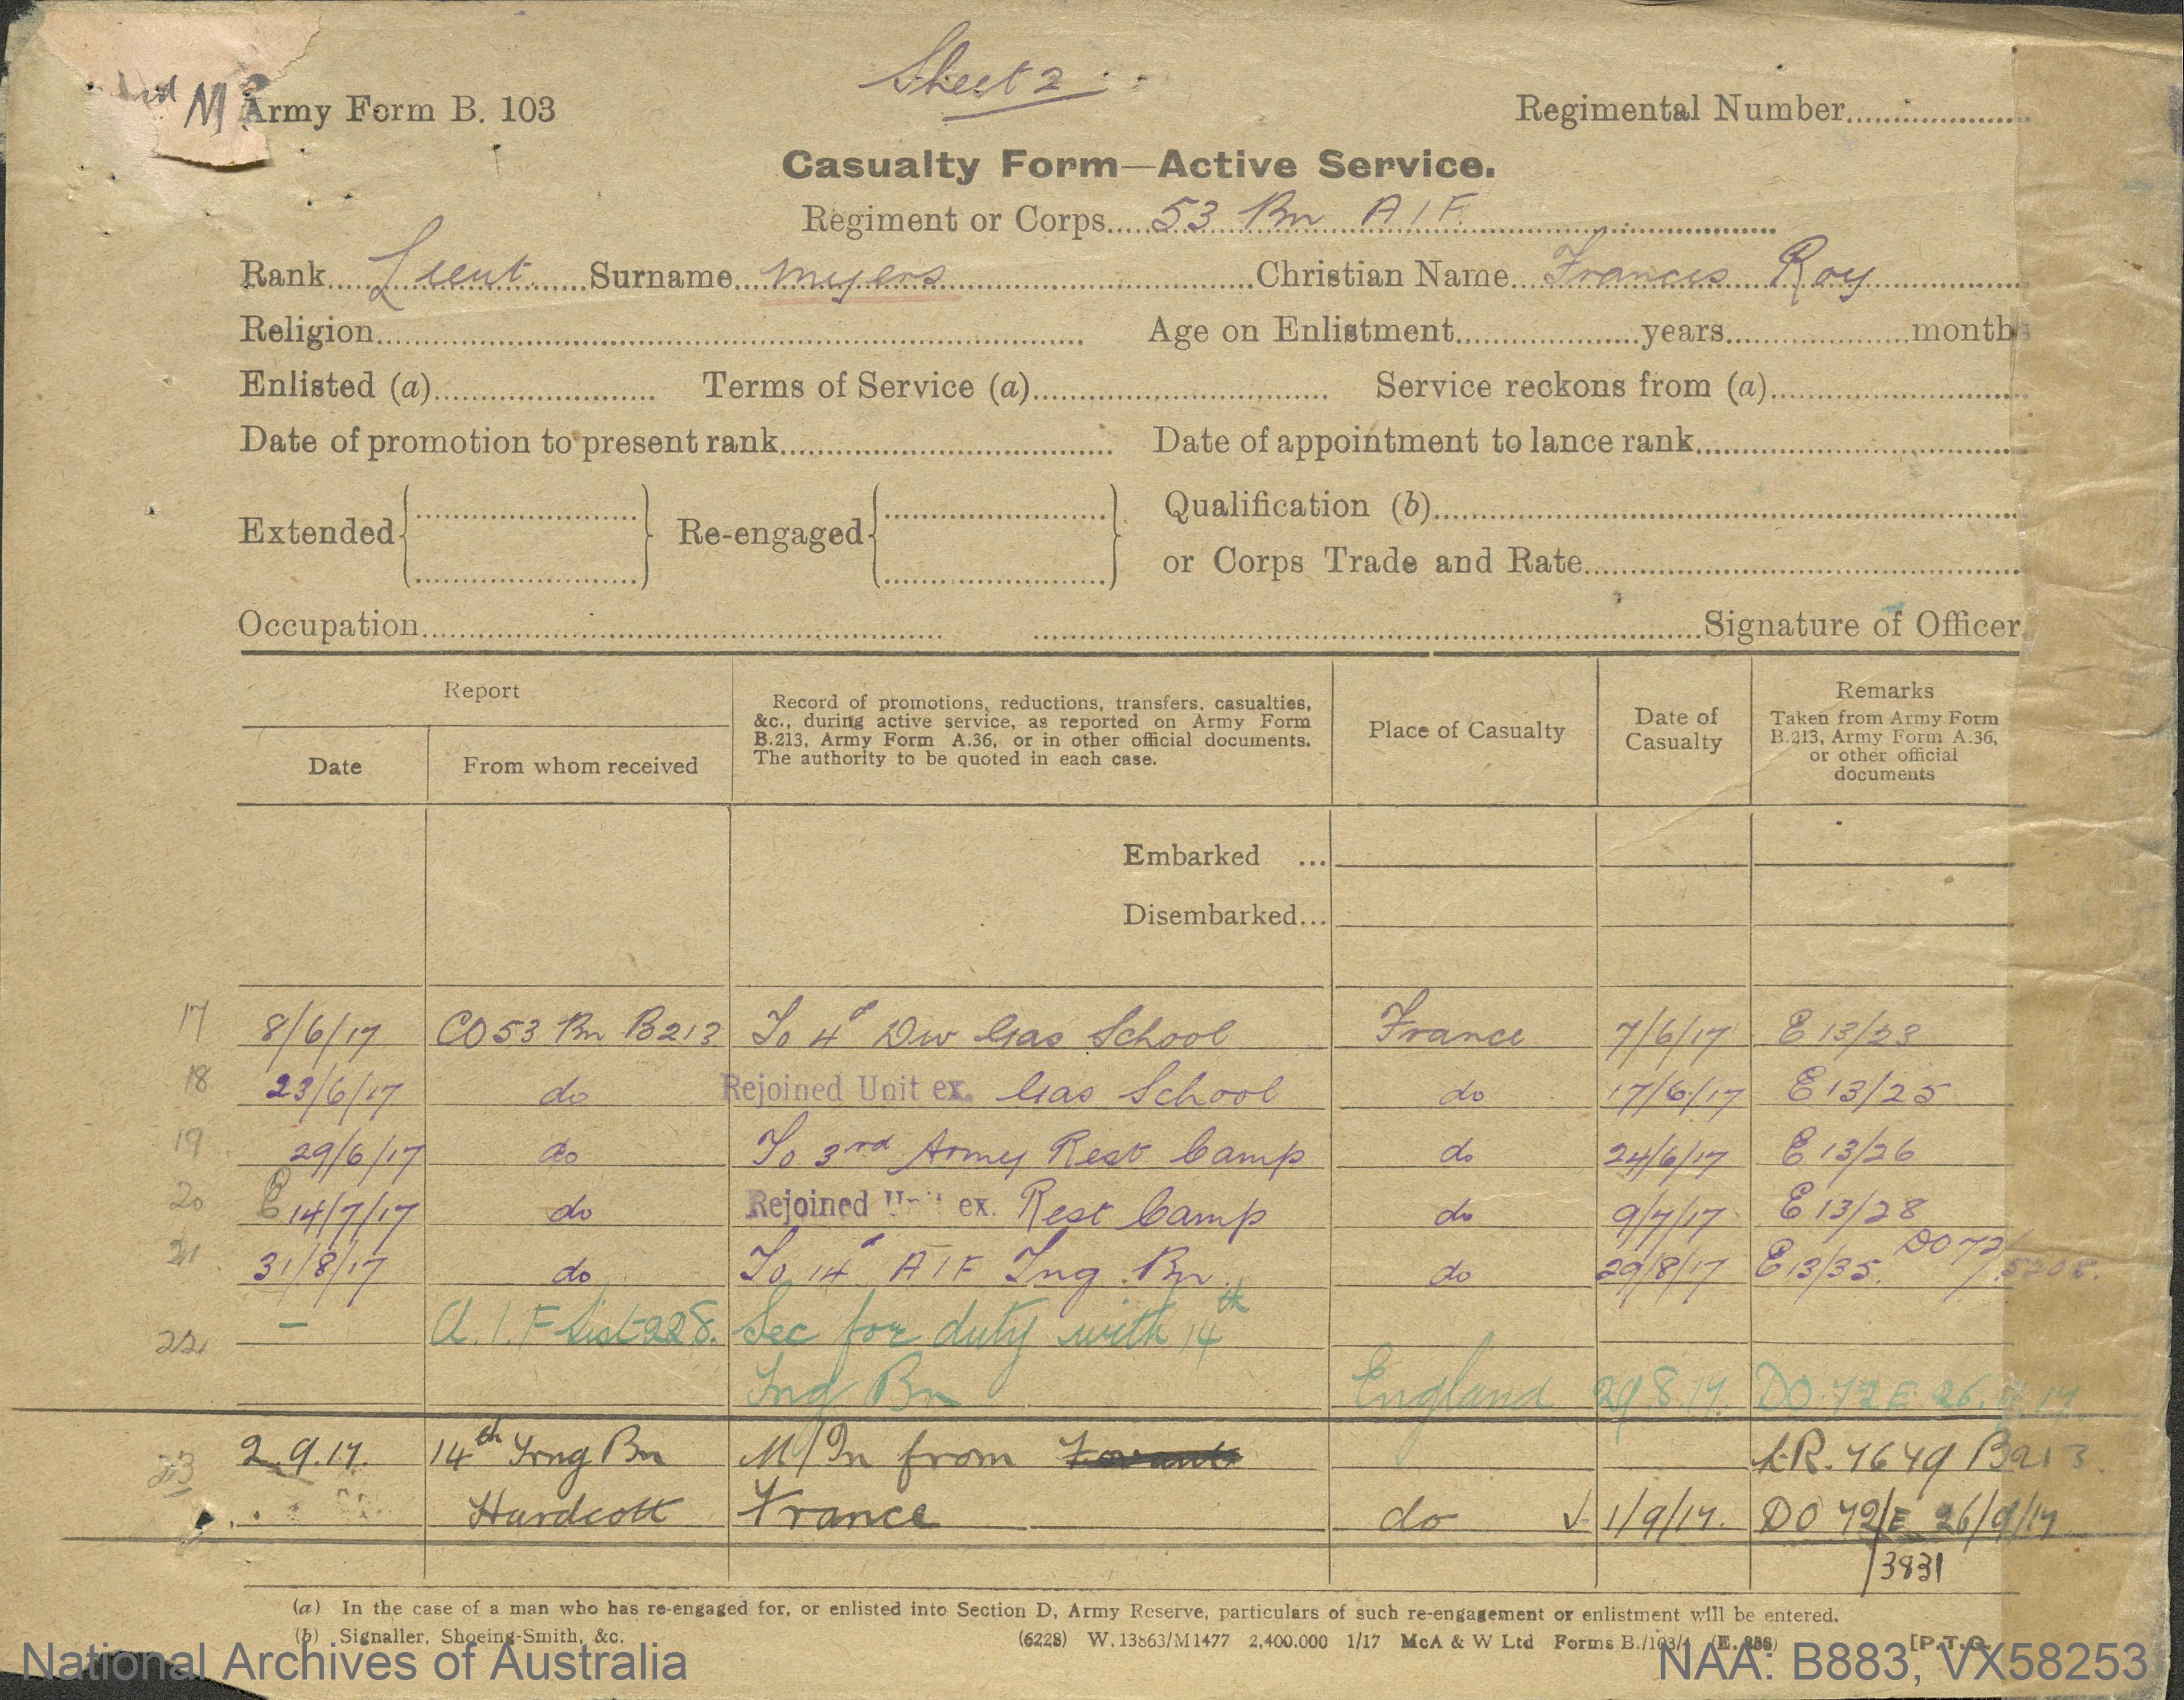 Sheet 2
Army Form B. 103
Regimental Number
Casualty Form—Active Service.
Regiment or Corps 53 Bn AIF.
Rank Lieut Surname Myers Christian Name Francis Roy
Religion Age on Enlistment years months
Enlisted (a) Terms of Service (a) Service reckons from (a)
Date of promotion to present rank Date of appointment to lance rank
Extended Re-engaged Qualification (b)
or Corps Trade and Rate
Occupation Signature of Officer
Report
Date
From whom received
Record of promotions, reductions, transfers, casualties,
&c., during active service, as reported on Army Form
B.213, Army Form A.36, or in other official documents.
The authority to be quoted in each case.
Place of Casualty
Date of
Casualty
Remarks
Taken from Army Form
B.213, Army Form A.36,
or other official
documents
Embarked ...
Disembarked...
17 8/6/17 CO 53 Bn B213 To 4 Div Gas School France 7/6/17 E 13/23
18 23/6/17 do Rejoined Unit ex. Gas School do 17/6/17 E 13/25
19 29/6/17 do To 3rd Army Rest Camp do 24/6/17 E 13/26
20 E 14/7/17 do Rejoined Unit ex. Rest Camp do 9/7/17 E 13/28
21 31/8/17 do To 14 AIF Tng Bn. do 29/8/17 E 13/35. DO 72/5208.
22 — A.I.F List 228. Sec for duty with 14th
Tng Bn England 29.8.17. DO 72 E 26.9.17
23 2.9.17. 14th Trng Bn M/In from Fovant AR. 7649 B213.
Hurdcott France do 1/9/17. DO 72/E 26/9/17
3831
(a) In the case of a man who has re-engaged for, or enlisted into Section D, Army Reserve, particulars of such re-engagement or enlistment will be entered.
(b) Signaller, Shoeing-Smith, &c.
(6228) W. 13863/M1477 2,400,000 1/17 McA & W Ltd Forms B./103/4 (E. 888) [P.T.O.
National Archives of Australia
NAA: B883, VX58253